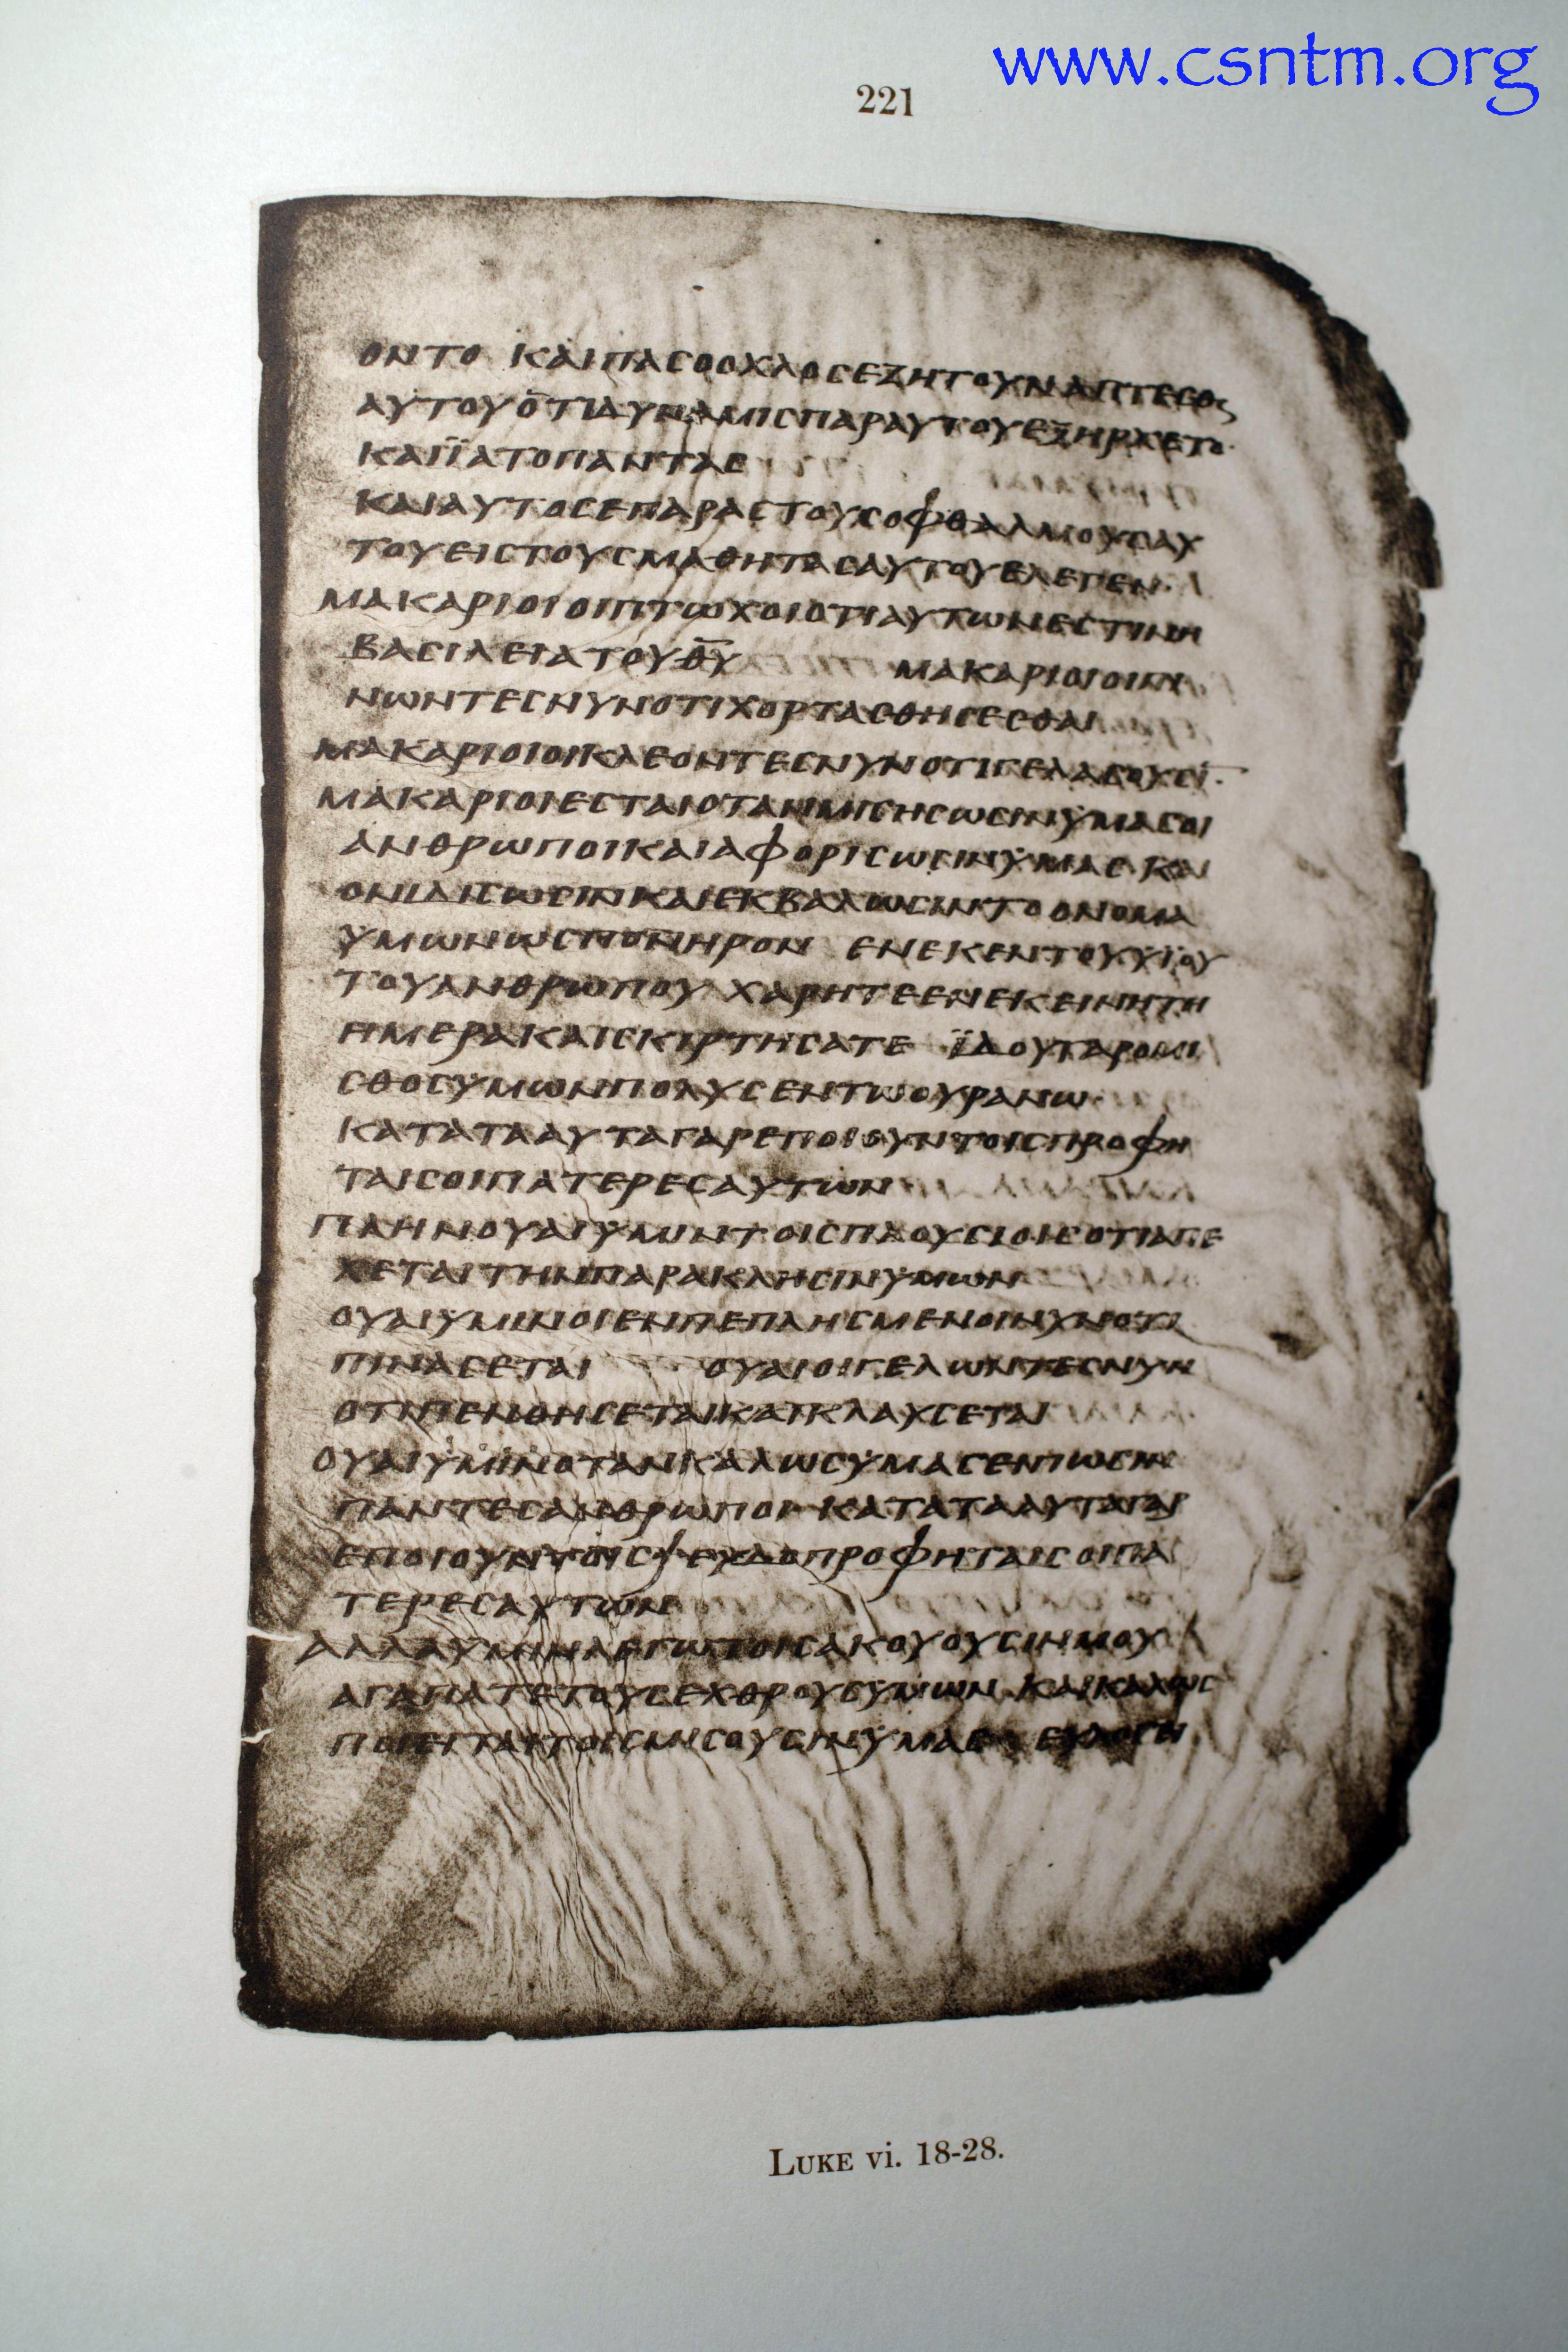 www.csntm.org
221
ΟΝΤΟ ΚΑΙΠΑCΟΟΧΛΟCΕΖΗΤΟΥΝΑΠΤΕCΘΕ
ΑΥΤΟΥΟΤΙΔΥΝΑΜΙCΠΑΡΑΥΤΟΥΕΞΗΡΧΕΤΟ·
ΚΑΙΪΑΤΟΠΑΝΤΑC
ΚΑΙΑΥΤΟCΕΠΑΡΑCΤΟΥCΟΦΘΑΛΜΟΥCΑΥ
ΤΟΥΕΙCΤΟΥCΜΑΘΗΤΑCΑΥΤΟΥΕΛΕΓΕΝ·
ΜΑΚΑΡΙΟΙΟΙΠΤΩΧΟΙΟΤΙΑΥΤΩΝΕCΤΙΝΗ
ΒΑCΙΛΕΙΑΤΟΥΘ̅Υ̅ ΜΑΚΑΡΙΟΙΟΙΠΙ
ΝΩΝΤΕCΝΥΝΟΤΙΧΟΡΤΑCΘΗCΕCΘΑΙ
ΜΑΚΑΡΙΟΙΟΙΚΛΕΟΝΤΕCΝΥΝΟΤΙΓΕΛΑCΟΥCΙ̅·
ΜΑΚΑΡΙΟΙΕCΤΑΙΟΤΑΝΜΙCΗCΩCΙΝΥΜΑCΟΙ
ΑΝΘΡΩΠΟΙΚΑΙΑΦΟΡΙCΩCΙΝΫΜΑC ΚΑΙ
ΟΝΙΔΙCΩCΙΝΚΑΙΕΚΒΑΛΩCΙΝΤΟΟΝΟΜΑ
ΫΜΩΝΩCΠΟΝΗΡΟΝ ΕΝΕΚΕΝΤΟΥΥΪΟΥ
ΤΟΥΑΝΘΡΩΠΟΥ ΧΑΡΗΤΕΕΝΕΚΕΙΝΗΤΗ
ΗΜΕΡΑΚΑΙCΚΙΡΤΗCΑΤΕ ΪΔΟΥΓΑΡΟΜΙ
CΘΟCΥΜΩΝΠΟΛΥCΕΝΤΩΟΥΡΑΝΩ·
ΚΑΤΑΤΑΑΥΤΑΓΑΡΕΠΟΙΟΥΝΤΟΙCΠΡΟΦΗ
ΤΑΙCΟΙΠΑΤΕΡΕCΑΥΤΩΝ
ΠΛΗΝΟΥΑΙΫΜΙΝΤΟΙCΠΛΟΥCΙΟΙCΟΤΙΑΠΕ
ΧΕΤΑΙΤΗΝΠΑΡΑΚΛΗCΙΝΫΜΩΝ
ΟΥΑΙΥΜΙΝΟΙΕΝΠΕΠΛΗCΜΕΝΟΙΝΥΝΟΤΙ
ΠΙΝΑCΕΤΑΙ ΟΥΑΙΟΙΓΕΛΩΝΤΕCΝΥΝ
ΟΤΙΠΕΝΘΗCΕΤΑΙΚΑΙΚΛΑΥCΕΤΑΙ
ΟΥΑΙΫΜΙΝΟΤΑΝΚΑΛΩCΥΜΑCΕΝΠΩCΙΝ
ΠΑΝΤΕCΑΝΘΡΩΠΟΙ ΚΑΤΑΤΑΑΥΤΑΓΑΡ
ΕΠΟΙΟΥΝΤΟΙCΨΕΥΔΟΠΡΟΦΗΤΑΙCΟΙΠΑ
ΤΕΡΕCΑΥΤΩΝ
ΑΛΛΑΥΜΙΝΛΕΓΩΤΟΙCΑΚΟΥΟΥCΙΝΜΟΥ
ΑΓΑΠΑΤΕΤΟΥCΕΧΘΡΟΥCΥΜΩΝ ΚΑΙΚΑΛΩC
ΠΟΙΕΙΤΑΙΤΟΙCΜΙCΟΥCΙΝΫΜΑC ΕΥΛΟΓΗ
LUKE vi. 18-28.